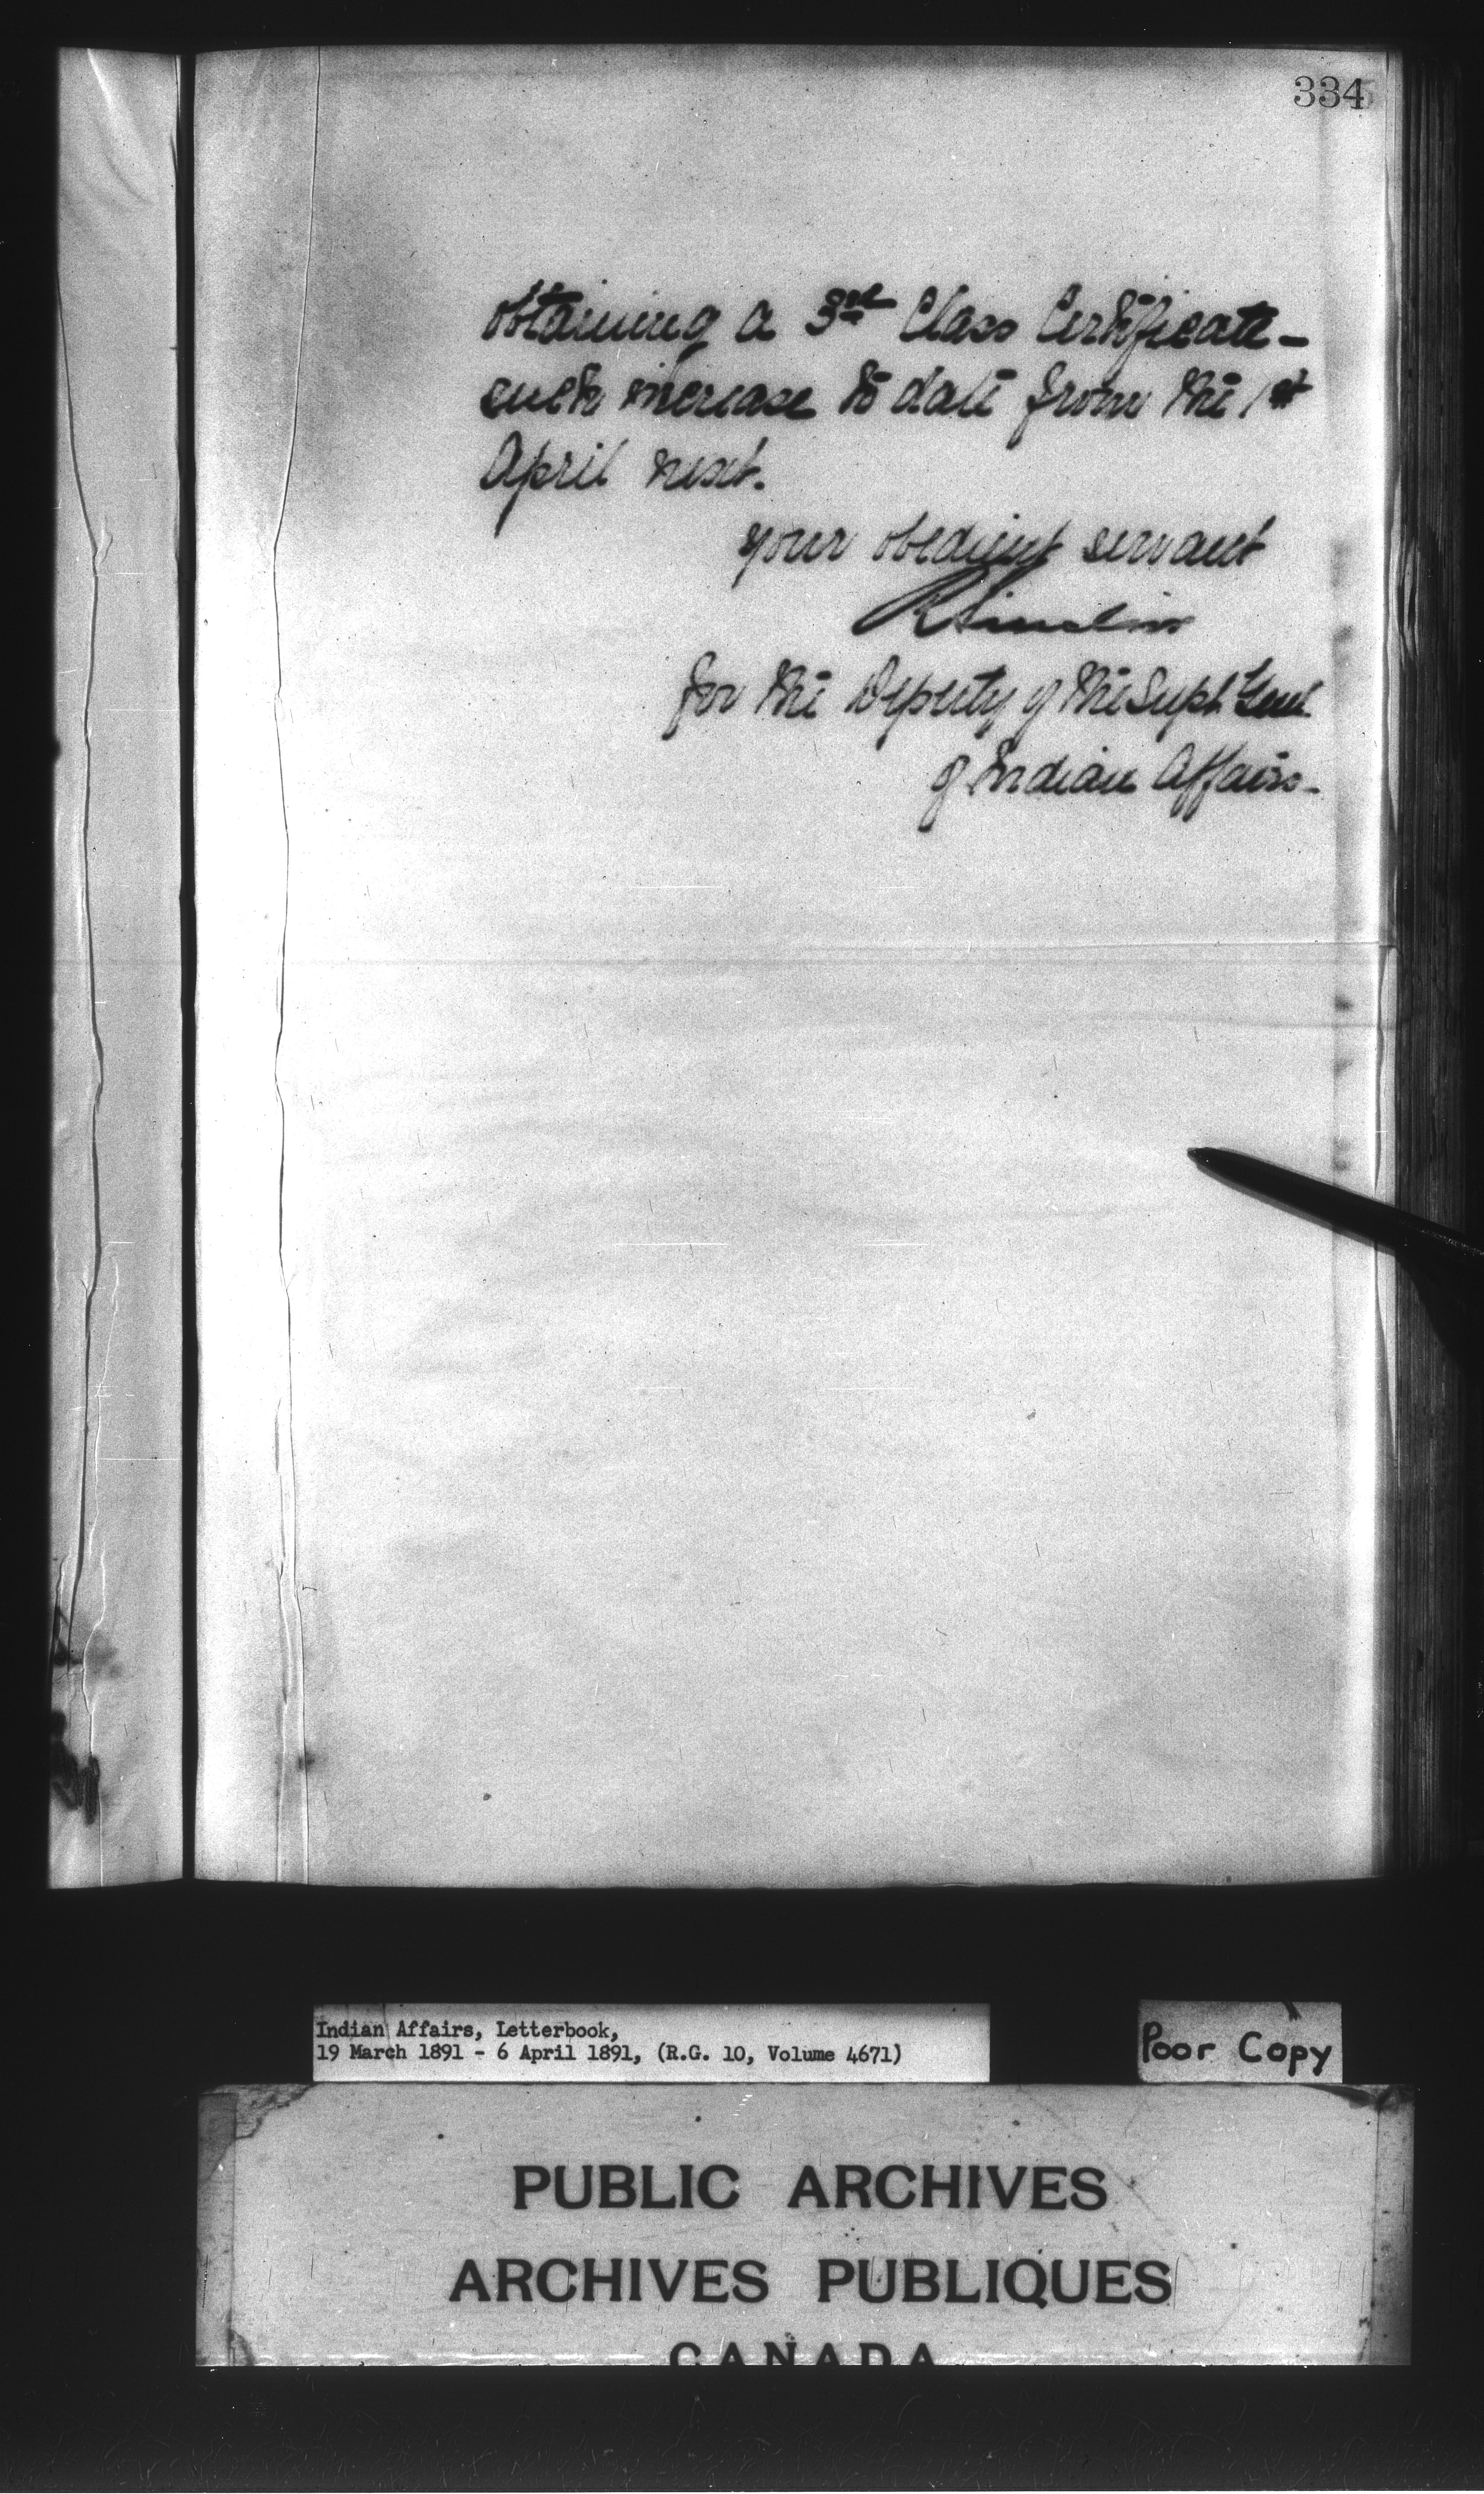 334
obtaining a 3rd Class Certificate -
such increase to date from the 1st
April next.
your obedient servant
R Sinclair
for the Deputy of the Supt. Genl.
of Indian Affairs -
Indian Affairs, Letterbook,
19 March 1891 - 6 April 1891, (R.G. 10, Volume 4671)
Poor Copy
PUBLIC ARCHIVES
ARCHIVES PUBLIQUES
CANADA